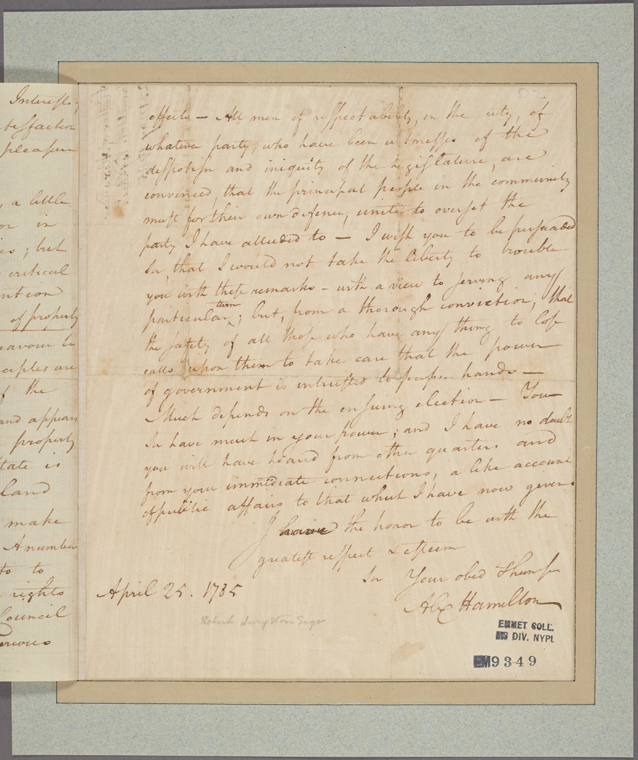 Interest
tisfaction
pleasure
, a little
or in
is; but
critical
ntion
of property
eavour to
ciples are
f the
and appears
property
tate is
land
make
A number
to to
rights
Council
effects — All men of respectability, in the city, of
whatever party, who have been witnesses of the
despotism and iniquity of the Legislature, are
convinced, that the principal people in the community
must for their own defence, unite to overset the
party I have alluded to — I wish you to be persuaded
Sir, that I would not take the liberty to trouble
you with these remarks — with a view to serving any
particular turn; but, from a thorough conviction, that
the safety of all those who have any thing to lose
calls upon them to take care that the power
of government is intrusted to proper hands —
Much depends on the ensuing election — You
Sir have much in your power; and I have no doubt
you will have heard from other quarters and
from your immediate connections, a like account
of public affairs to that which I have now given.
I have the honor to be with the
greatest respect & esteem
Sir Your obed Serv
April 25. 1785
Alex Hamilton
Robert Livingston Esqr
EMMET COLL.
MS DIV. NYPL
EM9349